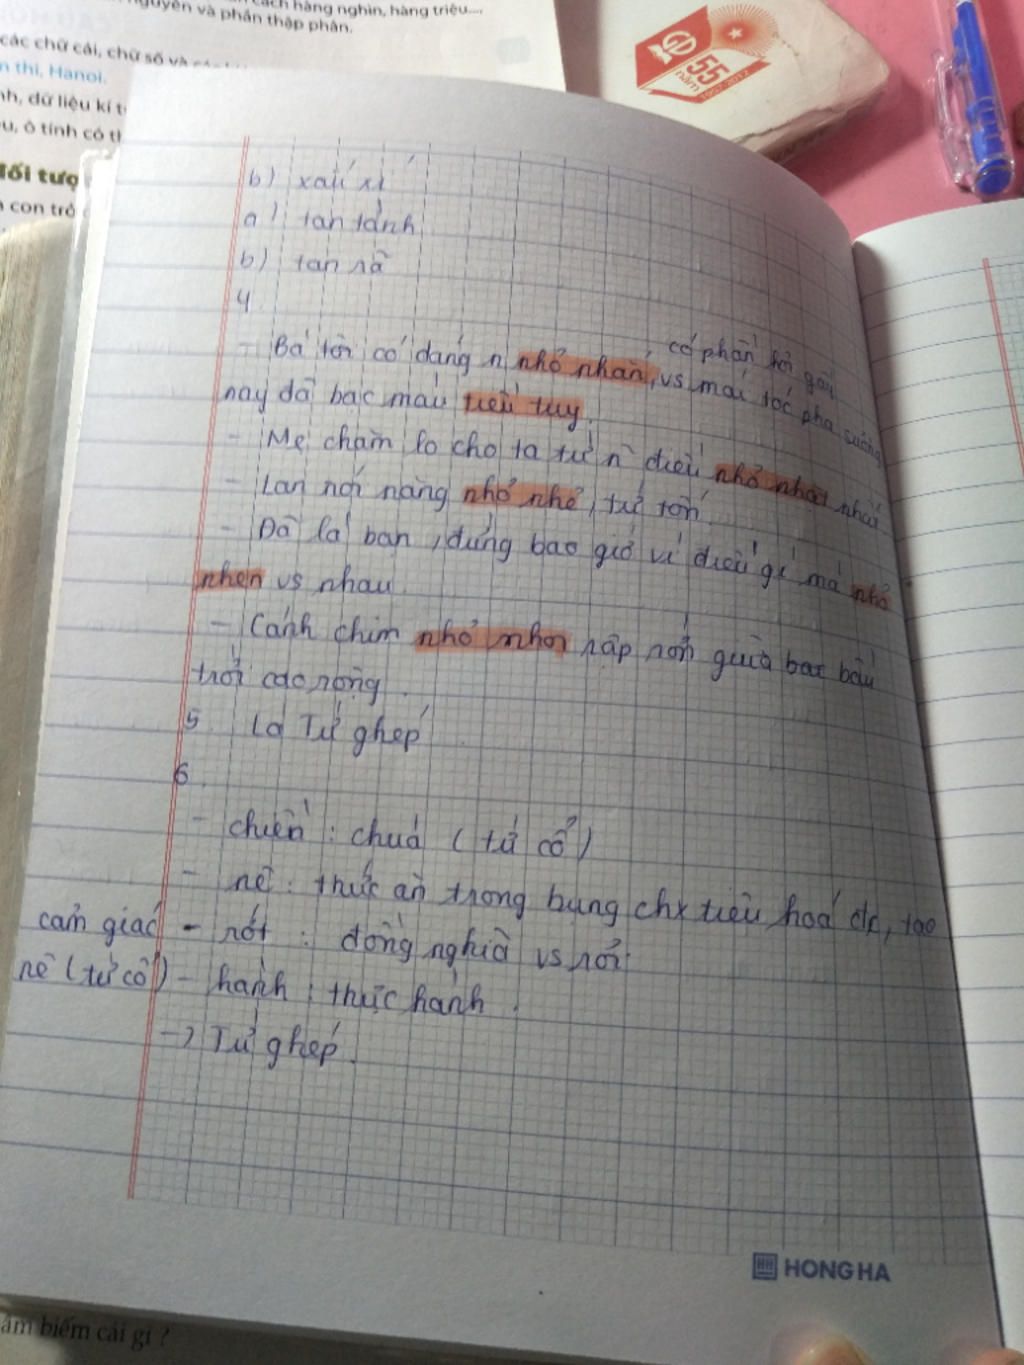 cách hàng nghìn, hàng triệu....
nguyên và phần thập phân.
các chữ cái, chữ số và các
n thi, Hanoi.
nh, dữ liệu kí t
u, ô tính có th
đối tượ
con trỏ
55
năm
1957-2012
b) xấu xí
a) tan tành
b) tan rã
4
- Bà tôi có dáng n nhỏ nhắn, có phần hơi gầy
vs mái tóc pha sương
nay đã bạc màu tiều tuỵ.
- Mẹ chăm lo cho ta từ n~ điều nhỏ nhặt nhất
- Lan nói năng nhỏ nhẻ, từ tốn
- Đã là bạn, đừng bao giờ vì điều gì mà nhỏ
nhen vs nhau
- Cánh chim nhỏ nhoi rập rờn giữa bao bầu
trời cao rộng.
5. Là Từ ghép
6
- chiền: chùa (từ cổ)
- nê: thức ăn trong bụng chx tiêu hoá đc, tạo
cảm giác
nê (từ cổ)
- rớt: đồng nghĩa vs rơi
- hành: thực hành.
-> Từ ghép.
HONG HA
ầm biếm cái gì ?